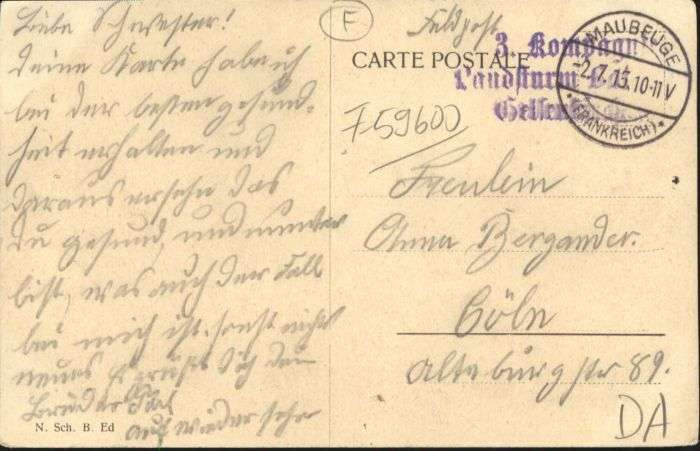 Liebe Schwester!
Deine Karte habe ich
bei der besten Gesund-
heit erhalten und
daraus ersehn das
du gesund, und munter
bist, was auch der Fall
bei mich ist. sonst nichts
neues Es grüßt Dich dein
Bruder
auf wieder sehn
N. Sch. B. Ed
F
Feldpost
CARTE POSTALE
3. Kompagn
Landsturm
Gelsen
MAUBEUGE
2.7.15. 10-11 V
(FRANKREICH)
F59600
Freulein
Anna Bergander.
Cöln
Alteburg str 89.
DA